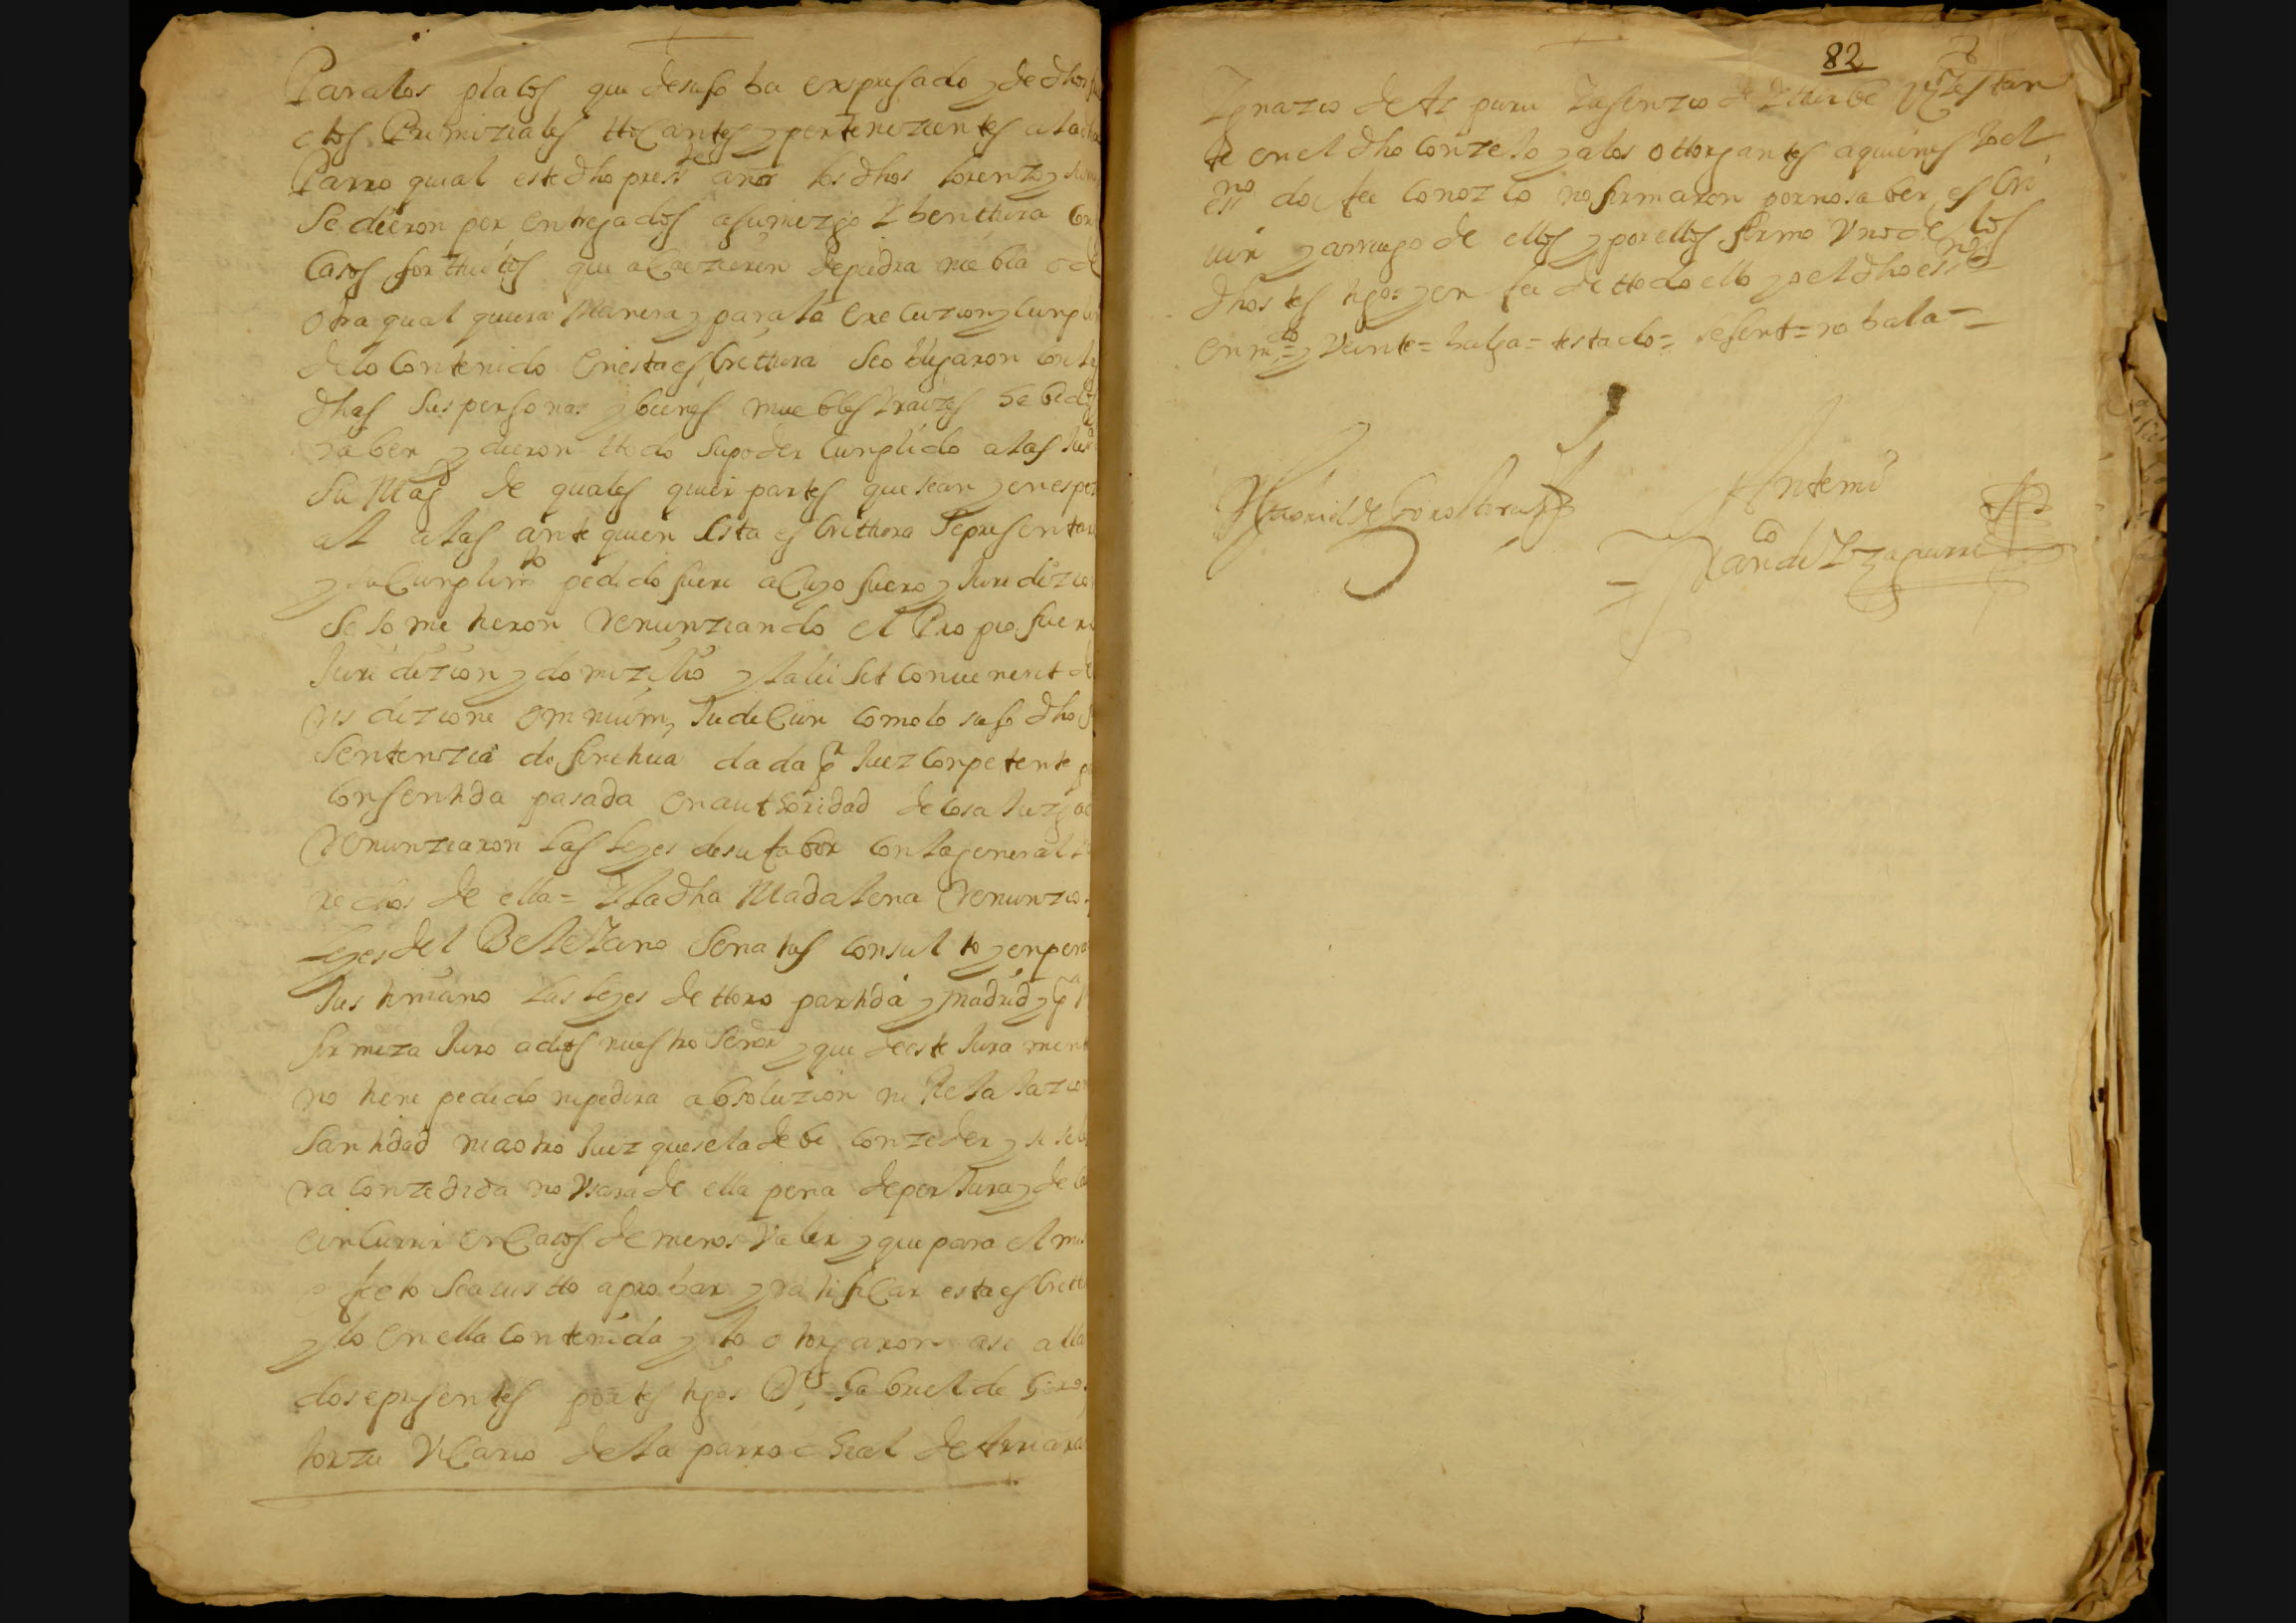 Paralos platos que desuso ha expresado y de dhos
ctos Primiziales ttocantes y pertenezientes ala
Parro quial este dho press.te año los dhos lorenzo y
se dieron por entregados asumezgo y benttura con
Casos forttuitos que aCaezieren de piedra niebla o de
otra qual quiera Manera y para la exeCuzion y cunpli
delo Contenido en esta esCrittura se obligaron con las
dhas sus personas y bienes muebles y raizes habidos
y aber y dieron ttodo su poder cunplido a las
su Mag de quales quier partes que sean y en espezi
al a las ante quien esta esCrittura se presentare
y su Cunplim.to pedido fuere a Cuyo fuero y Juridizion
se sometieron Renunziando el Propio fuero
Juridizion y domizilio y la lei sit convenerit de
ris dizione omnium Judicun como lo suso dho
sentenzia difinitiva dada p.r Juez conpetente
consentida pasada en authoridad de cosa Juzga
Renunziaron las leyes de su fabor con la general
rechos de ella = y la dha Madalena Renunzio
leyes del Beleyano senatus consulto y enpera
Justiniano las leyes de ttoro partida y Madrid y p.a
firmeza Juro a dios nuestro señor y que de este Jurament
no tiene pedido ni pedira absoluzion ni Relajazion
santidad ni a otro Juez que se la debe conzeder y si se
ra conzedida no Usara de ella pena de perJura y de
einCurrir en Casos de menos Valer y que para el
efecto sea visto aprobar y ratifiCar esta esCritt
y lo en ella contenido y lo otorgaron asi
dose presentes por tes tigos D.n Gabriel de Goros
torzu ViCario de la parrochial de Arriaran
82
Ygnazio de Az puru y asenzio de Ytturbe Vez.s y estan
te en el dho conzejo y a los ottorgantes a quienes yo el
ess.no doi fee conozco no firmaron por no saber esCri
vir y a rruego de ellos y por ellos firmo Uno de los
dhos tes tigos y en fee de ttodo ello yo el dho ess.no
enm.do = y Veinte = balga = testado = sesent = no bala =
Gabriel de Gorostorzu
Antemi
Fran.co de Yzaguirre